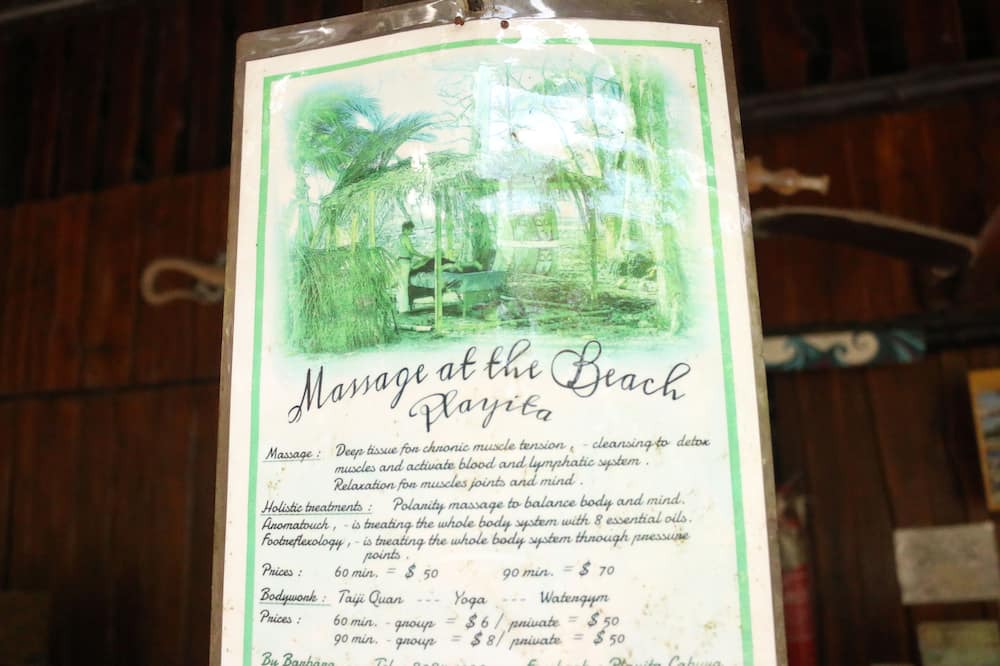 Massage at the Beach
Playita
Massage : Deep tissue for chronic muscle tension , - cleansing to detox
muscles and activate blood and lymphatic system .
Relaxation for muscles joints and mind .
Holistic treatments : Polarity massage to balance body and mind.
Aromatouch , - is treating the whole body system with 8 essential oils.
Footreflexology , - is treating the whole body system through pressure
points .
Prices : 60 min. = $ 50 90 min. = $ 70
Bodywork : Taiji Quan --- Yoga --- Watergym
Prices : 60 min. - group = $ 6 / private = $ 50
90 min. - group = $ 8 / private = $ 50
By Barbara Playita Cabuya